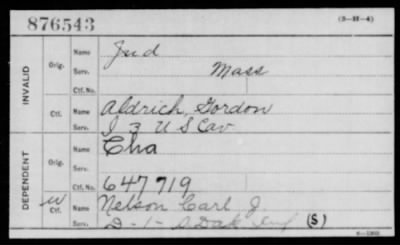 876543
(3-H-4)
INVALID
Orig.
Name Jud
Serv. Mass
Ctf. No.
Ctf.
Name Aldrich, Gordon
Serv. I 3 U S Cav
DEPENDENT
Orig.
Name Cha
Serv.
Ctf. No. 647 719
W Ctf.
Name Nelson Carl J.
Serv. D-1- S Dak Inf (S)